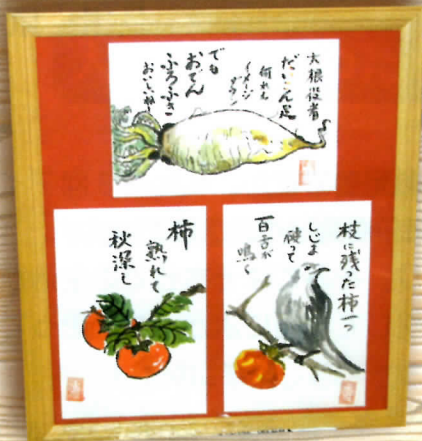 大根役者
だいこん足
何れも
イメージ
ダウン
でも
おでん
ふろふき
おいしいねー
柿
熟れて
秋深し
枝に残った柿一つ
しじま
破って
百舌が
鳴く